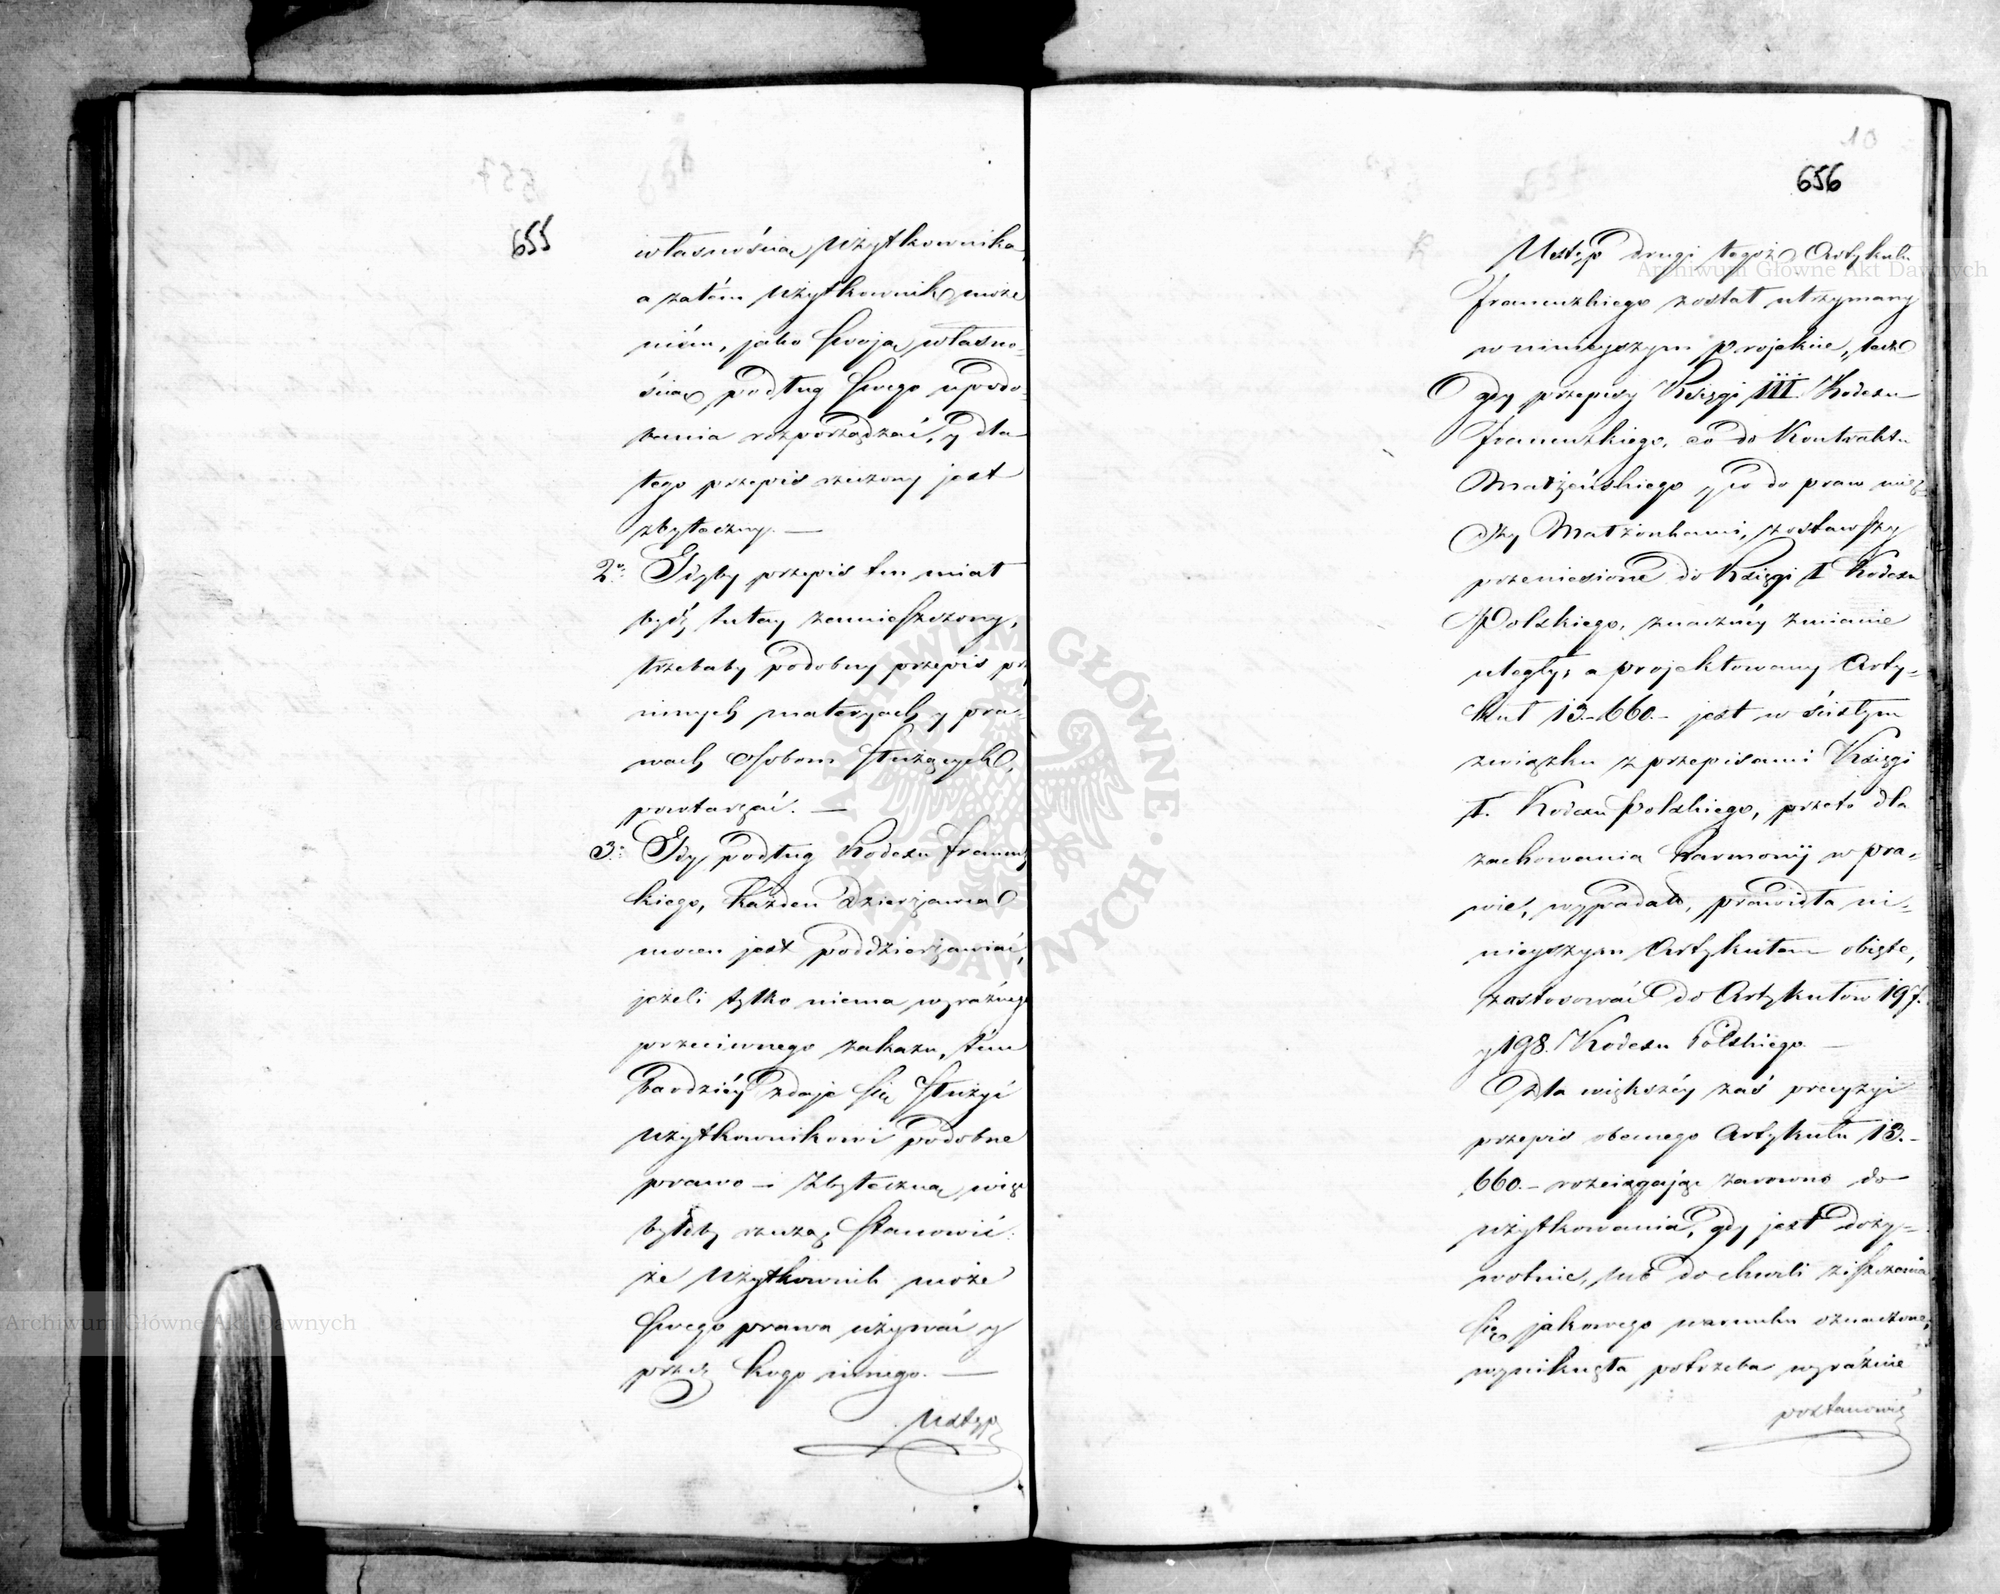 655
własnością Użytkownika,
a zatém Użytkownik może
niém, jako swoją własno-
ścią podług swego upodo-
bania rozporządzać, y dla
tego przepis rzeczony jest
zbyteczny. —
2o: Gdyby przepis ten miał
być tutay zamieszczony,
trzebaby podobny przepis prz
innych materyach y pra-
wach osobom służących,
powtarzać. —
3o: Gdy podług Kodexu francuz
kiego, każden Dzierżawca
mocen jest poddzierżawiać,
jeżeli tylko niema wyraźnego
przeciwnego zakazu, tém
bardziéy zdaje się służyć
Użytkownikowi podobne
prawo – i zbyteczną więc
byłoby rzeczą stanowić:
że Użytkownik może
swego prawa używać y
przez kogo innego. —
Ustęp
10
656
Ustęp drugi tegoż Artykułu
francuzkiego został utrzymany
w ninieyszym projekcie, lecz
gdy przepisy Księgi III. Kodexu
francuzkiego, co do Kontraktu
Małżeńskiego y co do praw mię-
dzy Małżonkami, zostawszy
przeniesione do Księgi I Kodexu
Polskiego, znaczney zmianie
uległy, a projektowany Arty-
kuł 13.-660.- jest w ścisłym
związku z przepisami Księgi
I. Kodexu polskiego, przeto dla
zachowania harmonij w pra-
wie, wypadało, prawidła ni-
nieyszym Artykułem objęte,
zastosować do Artykułów 197.
y 198. Kodexu Polskiego. —
Dla większéy zaś precyzyi
przepis obecnego Artykułu 13.-
660.- rozciągając zarówno do
użytkowania, gdy jest doży-
wotnie, lub do chwili ziszczenia
się jakowego warunku oznaczone,
wyniknęła potrzeba wyraźnie
postanowić
Archiwum Główne Akt Dawnych
Archiwum Główne Akt Dawnych
ARCHIWUM GŁÓWNE AKT DAWNYCH